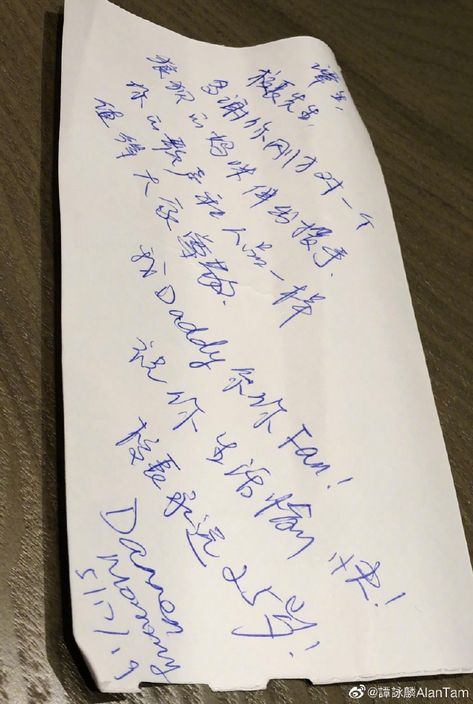 谭生,
校長先生,
多谢你刚才对一个
狼狈的妈咪伸出援手.
你的歌声和人品一样
值得大家尊敬.
我Daddy系你Fan!
祝你生活愉快!
校長永远25岁!
Darren
mommy
@譚詠麟AlanTam